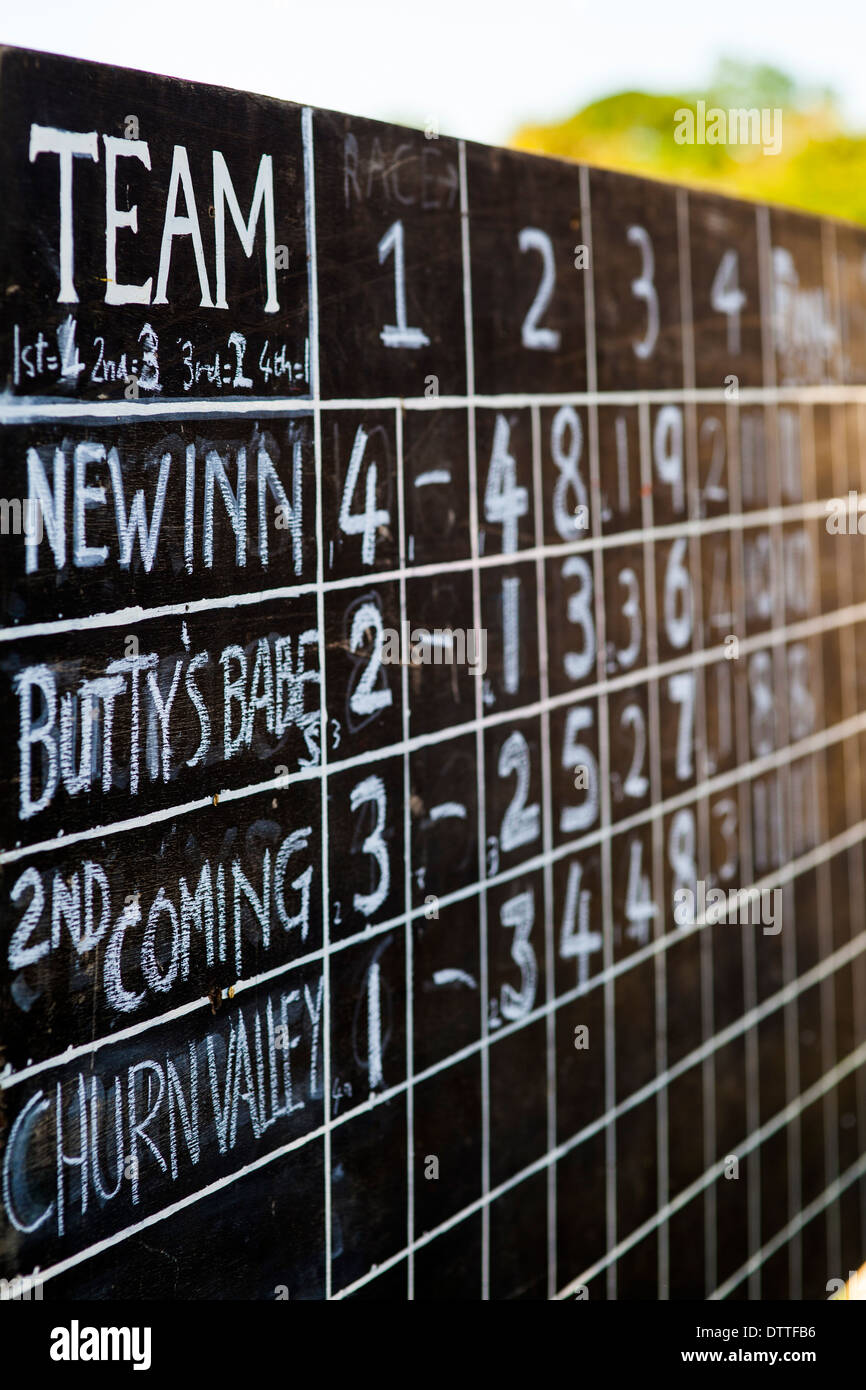 RACE→
TEAM 1 2 3 4
1st=4 2nd=3 3rd=2 4th=1
NEW INN 4 - 4 8 1 9 2 11 11
BUTTY'S BABES 2 - 1 3 3 6 4 10 10
2ND COMING 3 - 2 5 2 7 1 8 8
CHURN VALLEY 1 - 3 4 4 8 3 11 11
alamy
alamy
Image ID: DTTFB6
www.alamy.com